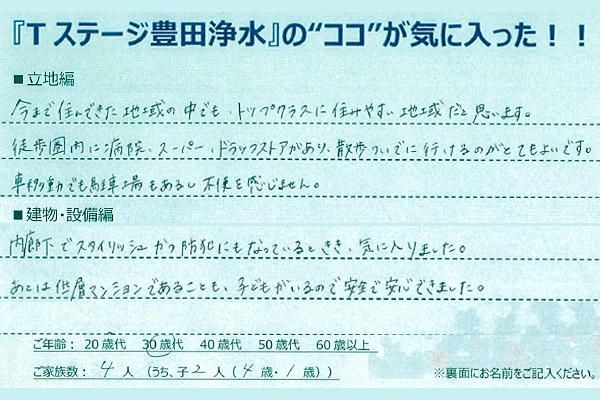 『Tステージ豊田浄水』の“ココ”が気に入った！！
■立地編
今まで住んできた地域の中でも、トップクラスに住みやすい地域だと思います。
徒歩圏内に病院、スーパー、ドラッグストアがあり、散歩ついでに行けるのがとてもよいです。
車移動でも駐車場もあるし不便を感じません。
■建物・設備編
内廊下でスタイリッシュかつ防犯にもなっているときき、気に入りました。
あとは低層マンションであることも、子どもがいるので安全で安心できました。
ご年齢：20歳代 30歳代 40歳代 50歳代 60歳以上
ご家族数：4人（うち、子2人（4歳・1歳））
※裏面にお名前をご記入ください。